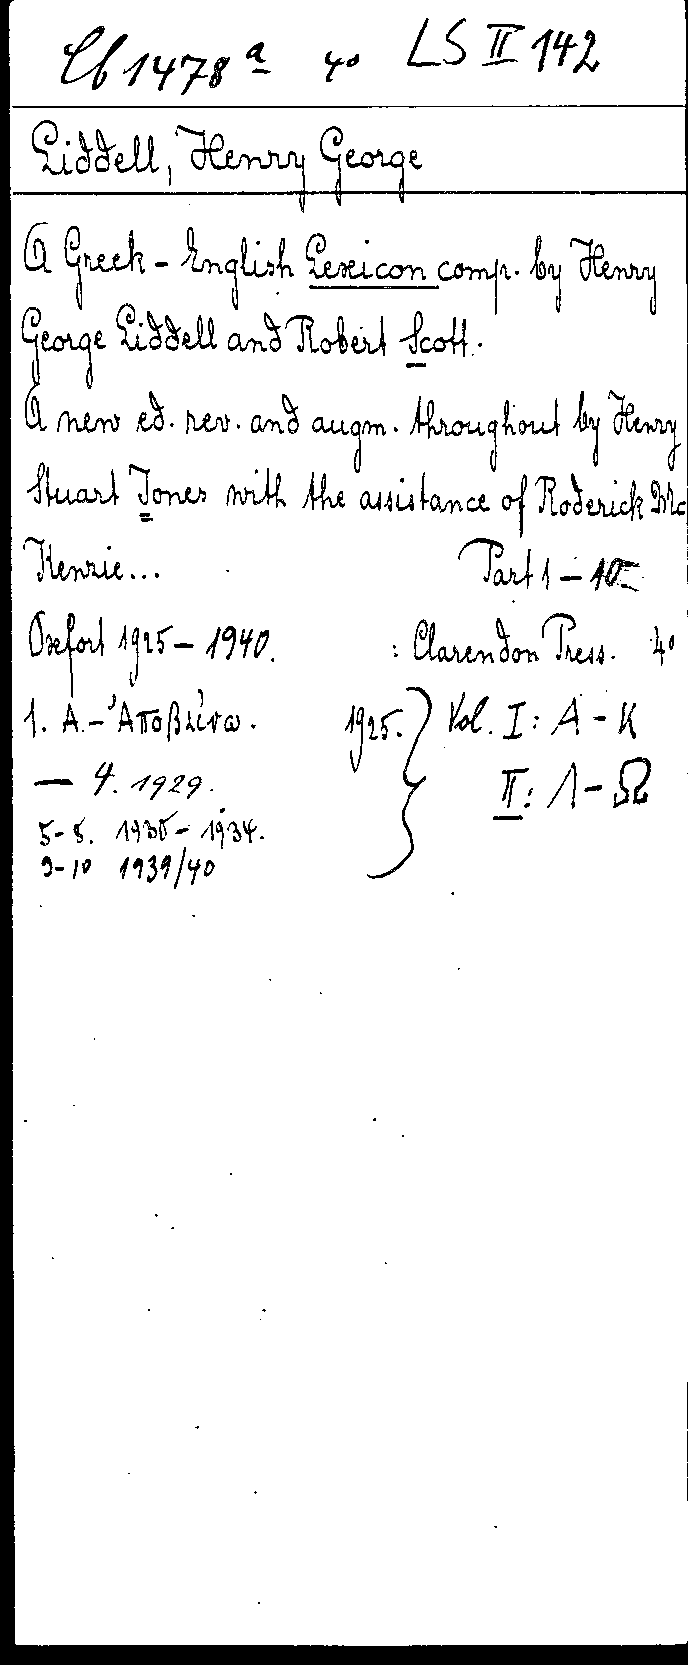 Cb 1478 a 4o LS II 142
Liddell, Henry George
A Greek-English Lexicon comp. by Henry
George Liddell and Robert Scott.
A new ed. rev. and augm. throughout by Henry
Stuart Jones with the assistance of Roderick Mc
Kenzie... Part 1 – 10
Oxfort 1925 – 1940. : Clarendon Press. 4o
1. Α. – Ἀποβαίνω. 1925. } Vol. I: Α – Κ
— 4. 1929. II: Λ – Ω
5-8. 1930 – 1934.
9-10 1939/40